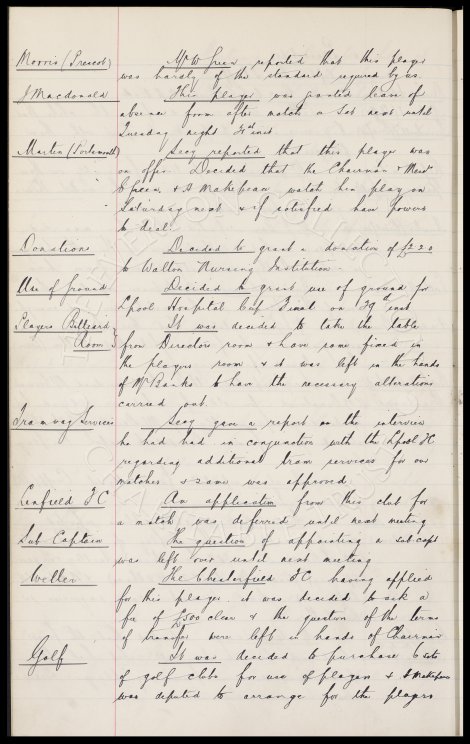 Morris (Prescot) Mr W Green reported that this player
was hardly of the standard required by us.
J Macdonald This player was granted leave of
absence from after match on Sat next until
Tuesday night inst
Martin (Portsmouth) Secy reported that this player was
on offer. Decided that the Chairman & Messrs
Green & H Makepeace watch him play on
Saturday next & if satisfied have powers
to deal.
Donations Decided to grant a donation of £2.2.0
to Walton Nursing Institution.
Use of Ground Decided to grant use of ground for
L'pool Hospital Cup Final on 29th inst
Players Billiard Room It was decided to take the table
from Directors room & have same fixed in
the players room & it was left in the hands
of Mr Banks to have the necessary alterations
carried out.
Tramway Services Secy gave a report on the interview
he had had in conjunction with the Lpool FC
regarding additional tram services for our
matches & same was approved.
Enfield FC An application from this club for
a match was deferred until next meeting
Sub Captain The question of appointing a sub capt
was left over until next meeting
Weller The Chesterfield FC having applied
for this player. it was decided to ask a
fee of £500 clear & the question of the terms
of transfer were left in hands of Chairman
Golf It was decided to purchase 6 sets
of golf clubs for use of players & H Makepeace
was deputed to arrange for the players